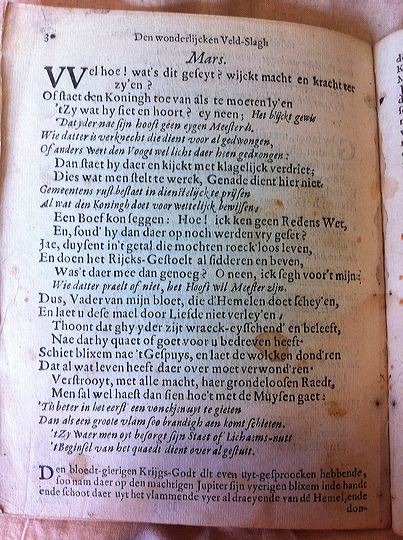 30 Den wonderlijcken Veld-Slagh
Mars.
VVel hoe! wat's dit geseyt? wijckt macht en kracht ter
zy'en?
Of staet den Koningh toe van als te moeten ly'en
'tZy wat hy siet en hoort? ey neen; Het blijckt gewis
Dat yder nae sijn hooft géen eygen Meester is.
Wie datter is verknecht die dient voor al gedwongen,
Of anders wert den Voogt wel licht daer heen gedrongen:
Dan staet hy daer en kijckt met klagelijck verdriet;
Dies wat men stelt te werck, Genade dient hier niet.
Gemeentens rust bestaet in dienstelijck te prijsen
Al wat den Koningh doet voor wettelijck bewijsen,
Een Boef kon seggen: Hoe! ick ken geen Redens Wet,
En, soud' hy dan daer op noch werden vry geset?
Jae, duysent in't getal die mochten roeck'loos leven,
En doen het Rijcks-Gestoelt al sidderen en beven,
Was't daer mee dan genoeg? O neen, ick segh voor't mijn:
Wie datter praelt of niet, het Hooft wil Meester zijn.
Dus, Vader van mijn bloet, die d'Hemelen doet schey'en,
En laet u dese mael door Liefde niet verley'en,
Thoont dat ghy yder zijt wraeck-eysschend' en beleeft,
Nae dat hy quaet of goet voor u bedreven heeft.
Schiet blixem nae 't Gespuys, en laet de wolcken dond'ren
Dat al wat leven heeft daer over moet verwond'ren.
Verstrooyt, met alle macht, haer grondeloosen Raedt,
Men sal wel haest dan sien hoe't met de Muysen gaet:
'Tis beter in het eerst een vonckjen uyt te gieten
Dan als een groote vlam soo brandigh aen komt schieten.
'tZy Waer men oyt besorgt sijn Staet of Lichaems-nutt
't Beginsel van het quaedt dient over al gestutt.
Den bloedt-gierigen Krijgs-Godt dit even uyt-gesproocken hebbende,
soo nam daer op den machtigen Jupiter sijn vyerigen blixem inde handt
ende schoot daer uyt het vlammende vyer al draeyende van dē Hemel, ende
don-